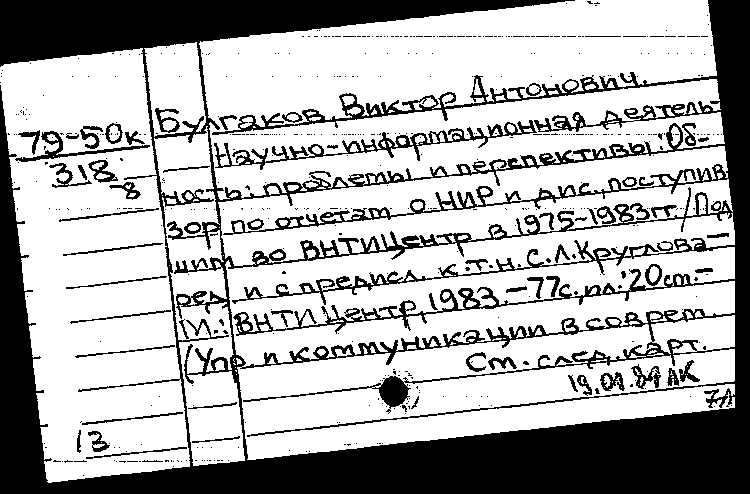 79-50к
318
-8
Булгаков, Виктор Антонович.
Научно-информационная деятель-
ность: проблемы и перспективы: Об-
зор по отчетам о НИР и дис., поступив
шим во ВНТИЦентр в 1975-1983гг. / Под
ред. и с предисл. к.т.н. С.Л. Круглова -
М.: ВНТИЦентр, 1983. - 77с., ил.; 20 см. -
(Упр. и коммуникации в соврет.
См. след. карт.
АК
13